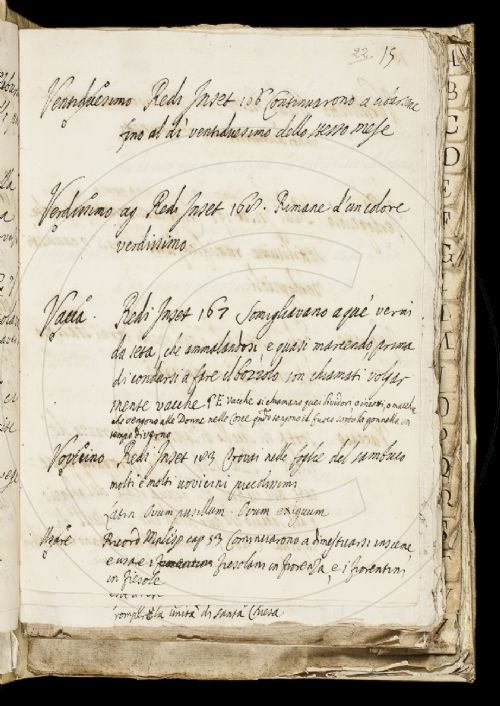 22. 15
Ventiduesimo Redi Inset 106 Continuarono a
fino al dì ventiduesimo dello stesso mese
Verdissimo ag Redi Inset 168. Rimane d'un colore
verdissimo
Vacca. Redi Inset 167 Somigliavano a que' vermi
da seta, che ammalandosi, e quasi marcendo prima
di condursi a fare il bozzolo son chiamati volgar
mente vacche E Vacche si chiamano quei lividori o
che vengono alle Donne nelle cosce tengono il fuoco sotto la gonnella in
tempo d'iverno
Vovicino Redi Inset 183 Trovai nelle foglie del sambuco
molti e molti vovicini piccolissimi
Latin Ovum pusillum. Ovum exiguum
Usare Ricord Malisp cap 53 Cominciarono a dimesticarsi insieme
e usare i fiesolani in fiorenza, e i fiorentini
in fiesole
la unità di santa Chiesa
A
B
C
D
E
F
G
I
L
M
O
P
Q
R
S